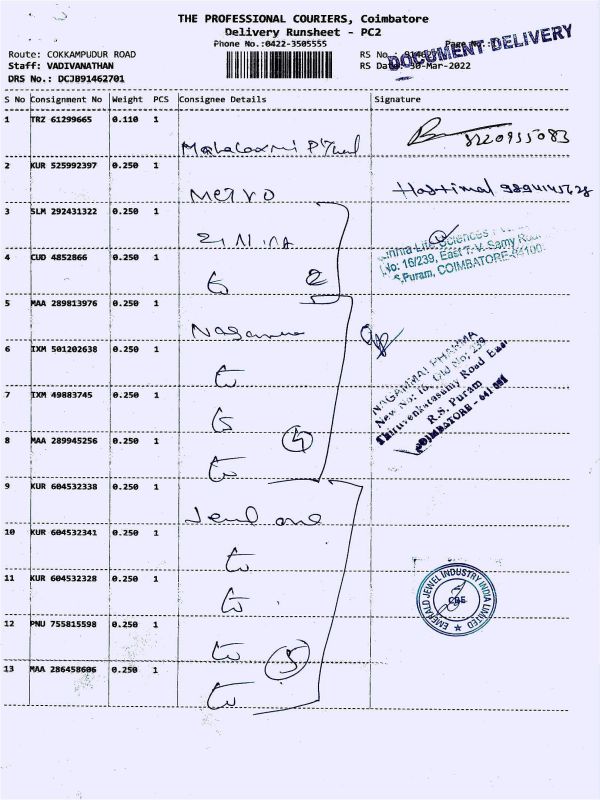 THE PROFESSIONAL COURIERS, Coimbatore
Delivery Runsheet - PC2
Phone No.:0422-3505555
DOCUMENT DELIVERY
Route: COKKAMPUDUR ROAD
RS No.:
Staff: VADIVANATHAN
RS Date: 30-Mar-2022
DRS No.: DCJB91462701
S No Consignment No Weight PCS Consignee Details Signature
1 TRZ 61299665 0.110 1
8220935083
2 KUR 525992397 0.250 1
Metro
Hastimal 9894145628
3 SLM 292431322 0.250 1
Life Sciences
No: 16/239, East T. V. Samy Road
R.S.Puram, COIMBATORE-64100
4 CUD 4852866 0.250 1
2
5 MAA 289813976 0.250 1
NAGAMMAI PHARMA
New No: 16, Old No: 239,
Thiruvenkatasamy Road East
R.S. Puram
COIMBATORE - 641 001
6 IXM 501202638 0.250 1
7 IXM 49883745 0.250 1
4
8 MAA 289945256 0.250 1
9 KUR 604532338 0.250 1
Jewel one
10 KUR 604532341 0.250 1
11 KUR 604532328 0.250 1
EMERALD JEWEL INDUSTRY INDIA LIMITED
CBE
12 PNU 755815598 0.250 1
5
13 MAA 286458606 0.250 1